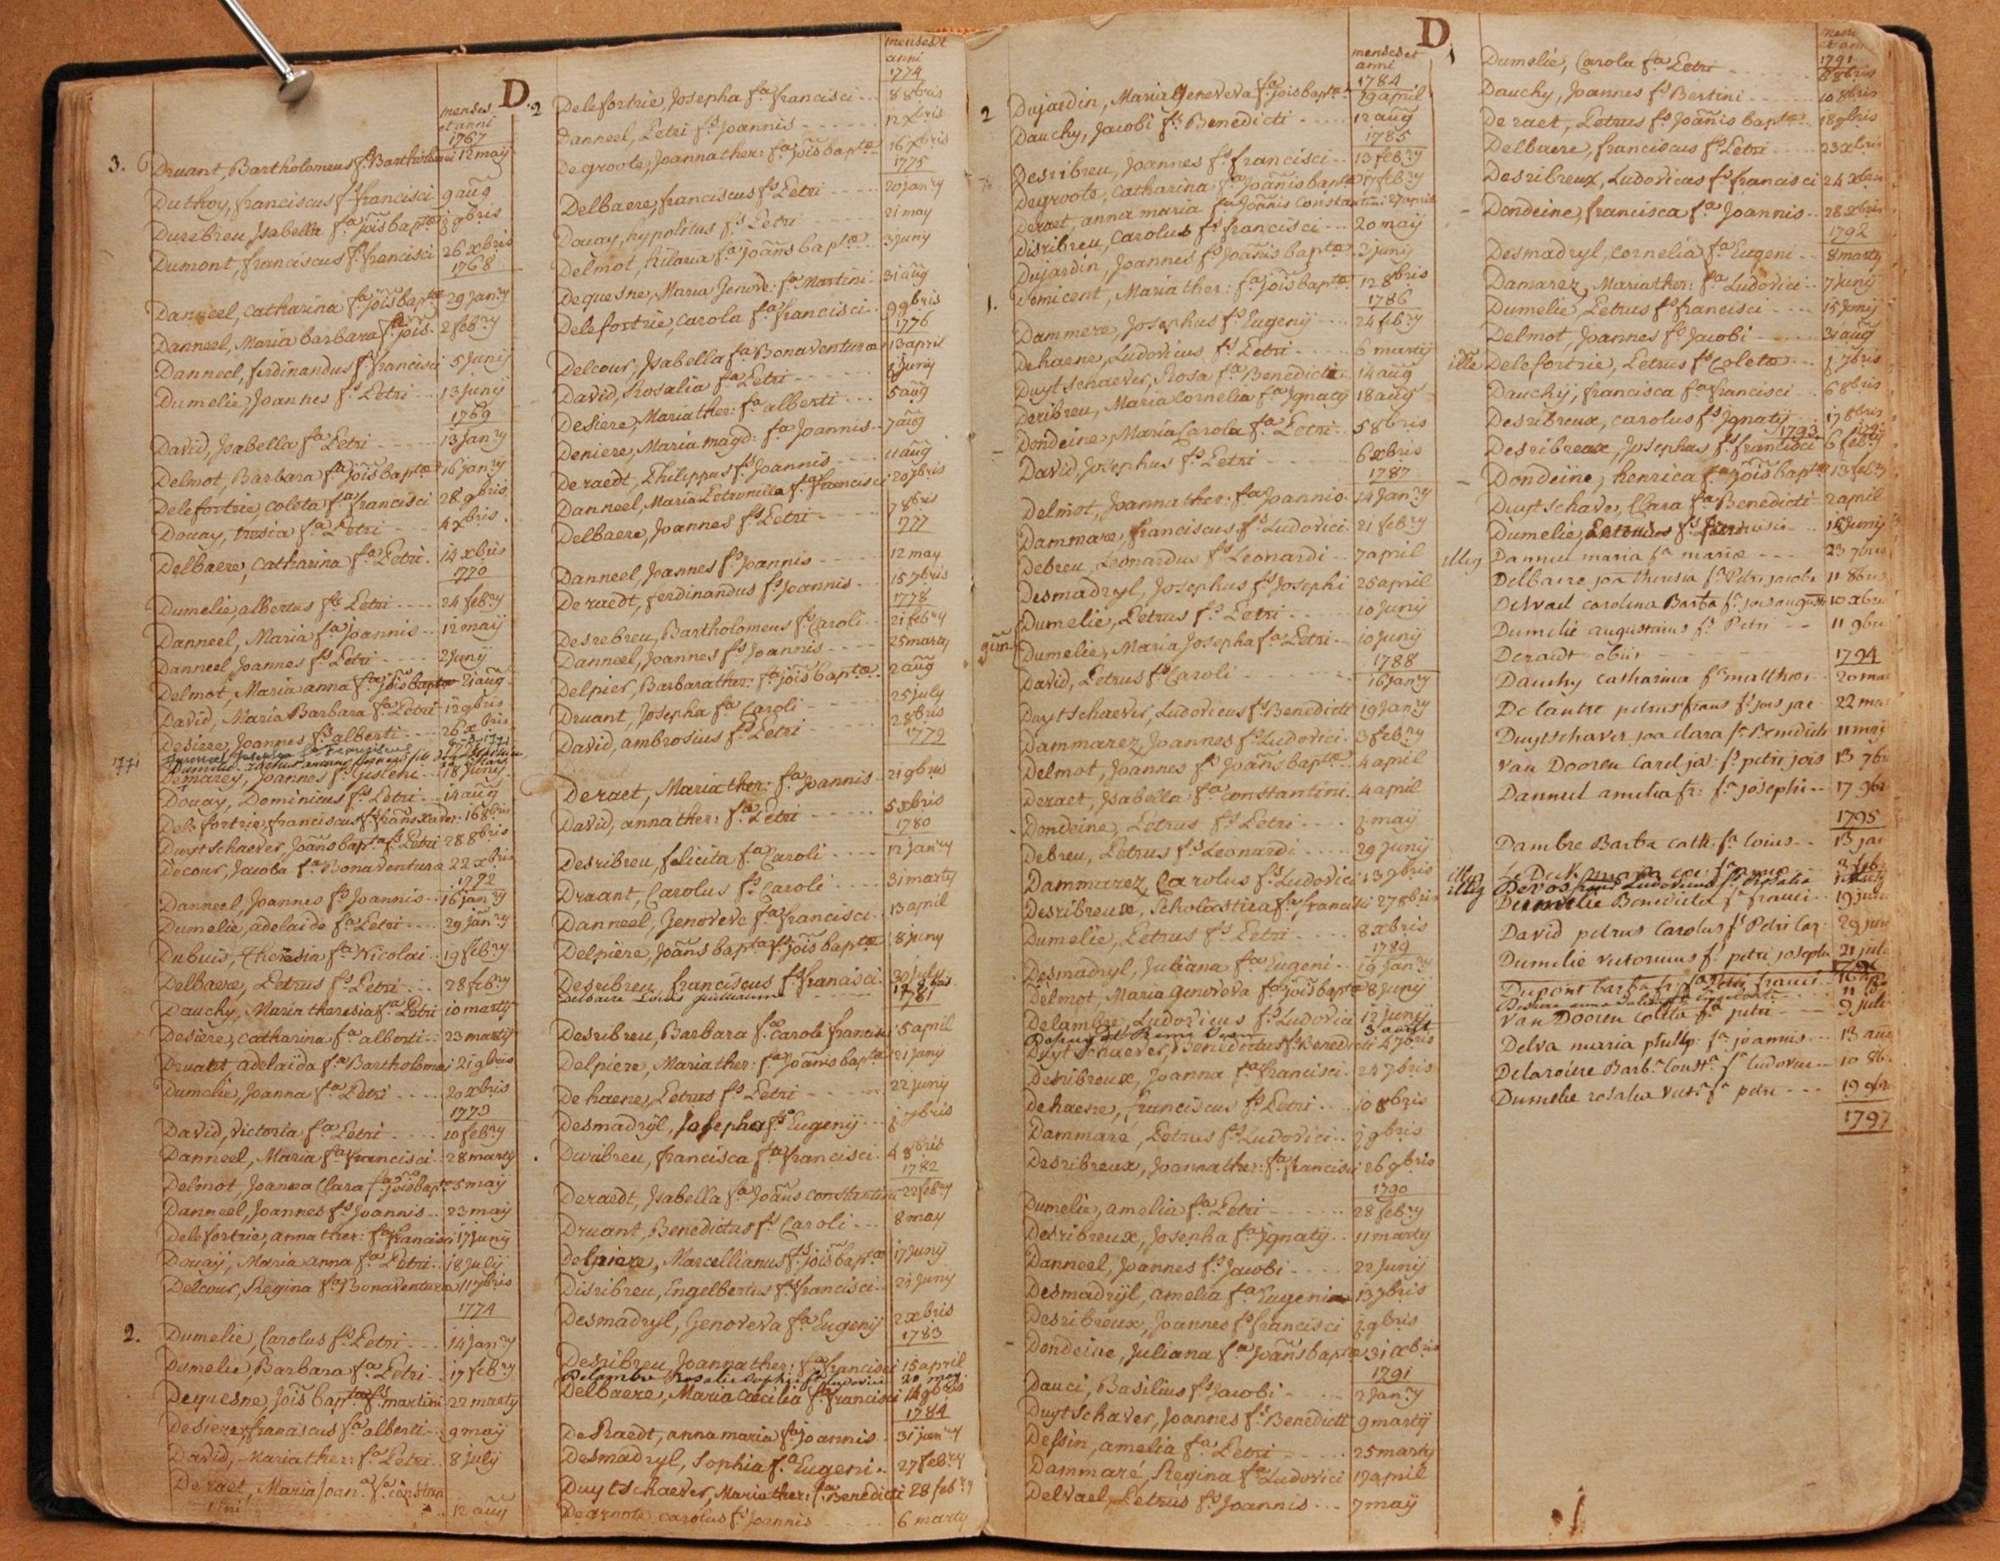 D
menses
et anni
1767
3. Druant, Bartholomeus fs Bartholomei 12 maÿ
Duthoy, franciscus fs francisci 9 aug
Durebreu Isabella fa joïs baptæ 8 gbris
Dumont, franciscus fs francisci 26 xbris
1768
Danneel, catharina fa joïs baptæ 29 janry
Danneel, Maria barbara fa joïs 2 febry
Danneel, ferdinandus fs francisci 5 Junÿ
Dumelie, Joannes fs Petri 13 Juny
1769
David, Isabella fa Petri 13 Janry
Delmot, Barbara fa joïs baptæ 16 janry
Delefortrie, coleta fa francisci 28 gbris
Douay, tresia fa Petri 4 xbris
Delbaere, catharina fa Petri 14 xbris
1770
Dumelie, albertus fs Petri 24 febry
Danneel, Maria fa joannis 12 maÿ
Danneel, Joannes fs Petri 2 Junÿ
Delmot, Maria anna fa joïs baptæ 21 aug
David, Maria Barbara fa Petri 12 gbris
Desiere, Joannes fs alberti 26 xbris
1771 Demarez, Joannes fs Gisleni 18 Juny
Douay, Dominicus fs Petri 14 aug
Delefortrie, franciscus fs frans xaver: 16 8bris
Duytschaever, Joans bapta fs Petri 28 8bris
Decour, Jacoba fa Bonaventura 22 xbris
1772
Danneel, Joannes fs Joannis 16 janry
Dumelie, adelaide fa Petri 29 janry
Dubuis, Theresia fa Nicolai 19 febry
Delbaere, Petrus fs Petri 28 febry
Dauchy, Maria theresia fa Petri 10 marty
Desiere, catharina fa alberti 23 martÿ
Druant, adelaida fa Bartholomei 21 gbris
Dumelie, Joanna fa Petri 20 xbris
1773
David, victoria fa Petri 10 febry
Danneel, Maria fa francisci 28 marty
Delmot, Joanna Clara fa joïs baptæ 5 maÿ
Danneel, Joannes fs Joannis 23 maÿ
Delefortrie, anna ther: fa francisci 17 junÿ
Douaÿ, Maria anna fa Petri 18 Julÿ
Delcour, Regina fa Bonaventura 11 7bris
1774
2. Dumelie, Carolus fs Petri 14 Janry
Dumelie, Barbara fa Petri 17 febry
Dequesne, Joïs bapta fs martini 22 marty
Desiere, franciscus fs alberti 9 maÿ
David, Maria ther: fa Petri 8 july
Deraet, Maria Joana fa constan
tini 12 aug
menses et
anni
1774
2 Delefortrie, Josepha fa francisci 8 8bris
Danneel, Petri fs Joannis 12 xbris
Degroote, Joanna ther: fa joïs baptæ 16 xbris
1775
Delbaere, franciscus fs Petri 20 janry
Douay, hypolitus fs Petri 21 may
Delmot, hilaria fa joans baptæ 3 juny
Dequesne, Maria Genove: fa Martini 31 aug
Delefortrie, Carola fa francisci 9 gbris
1776
Delcour, Isabella fa Bonaventuræ 13 april
David, Rosalia fa Petri Juny
Desiere, Maria ther: alberti 5 aug
Deniere, Maria magd: fa Joannis 7 aug
Deraedt, Philippus fs Joannis 11 aug
Danneel, Maria Petronilla fa francisci 20 7bris
Delbaere, Joannes fs Petri 7 8bris
1777
Danneel, Joannes fs Joannis 12 may
Deraedt, ferdinandus fs Joannis 15 7bris
1778
Desrebreu, Bartholomeus fs Caroli 21 febry
Danneel, Joannes fs Joannis 25 marty
Delpier, Barbara ther: fa joïs baptæ 2 aug
Druant, Josepha fa Caroli 25 july
David, ambrosius fs Petri 2 8bris
1779
Deraet, Maria ther: fa Joannis 21 gbris
David, anna ther: fa Petri 5 xbris
1780
Desribreu, felicita fa Caroli 12 janry
Druant, Carolus fs Caroli 31 marty
Danneel, Genoveve fa francisci 13 april
Delpiere, Joans bapta fs joïs baptæ 8 juny
Desribreu, franciscus fs francisci 30 july
1781
Desribreu, Barbara fa caroli francisci 5 april
Delpiere, Maria ther: fa Joanis baptæ 21 junÿ
Dehaene, Petrus fs Petri 22 junÿ
Desmadrÿl, Josepha fa Eugenÿ 7bris
Desribreu, francisca fa francisci 4 8bris
1782
Deraedt, Isabella fa Joans constantini 22 febry
Druant, Benedictus fs Caroli 8 may
Delpiere, Marcellianus fs joïs baptæ 17 Junÿ
Disribreu, Engelbertus fs francisci 21 Juny
Desmadryl, Genoveva fa Eugenÿ 2 xbris
1783
Desribreu, Joanna ther: fa francisci 15 april
Delbaere, Maria Cæcilia fa francisci 14 gbris
1784
DeRaedt, anna maria fa joannis 31 janry
Desmadryl, Sophia fa Eugeni 27 febry
Duytschaever, Maria ther: fa Benedicti 28 febry
Degroote carolus fs joannis 6 marty
D
menses et
anni
1784
2 Dujardin, Maria Genoveva fa joïs baptæ 29 april
Dauchy, Jacobi fs Benedicti 12 aug
1785
Desribreu, Joannes fs francisci 13 febry
Degroote, Catharina fa Joanis baptæ 17 febry
Deraet, anna maria fa Joannis Constantini 27 april
Disribreu, Carolus fs francisci 20 maÿ
Dujardin, Joannes fs Joanis baptæ 2 junÿ
1. Demicent, Maria ther: fa joïs baptæ 12 8bris
1786
Dammere, Josephus fs Eugenÿ 24 febry
Dehaene, Ludovicus fs Petri 6 martÿ
Duytschaever, Rosa fa Benedicti 14 aug
Desribreu, Maria Cornelia fa Ignatÿ 18 aug
Dondeine, Maria Carola fa Petri 5 8bris
David, Josephus fs Petri 6 xbris
1787
Delmot, Joanna ther: fa Joannis 14 Janry
Dammare, franciscus fs Ludovici 21 febry
Debreu, Leonardus fs Leonardi 7 april
Desmadryl, Josephus fs Josephi 25 april
Dumelie, Petrus fs Petri 10 Junÿ
Dumelie, Maria Josepha fa Petri 10 Junÿ
1788
David, Petrus fs Caroli 16 Janry
Duytschaever, Ludovicus fs Benedicti 19 Janry
Dammarez, Joannes fs Ludovici 3 febry
Delmot, Joannes fs Joanis baptæ 4 april
Deraet, Isabella fa Constantini 4 april
Dondeine, Petrus fs Petri maÿ
Debreu, Petrus fs Leonardi 29 junÿ
Dammarez, Carolus fs Ludovici 13 gbris
Desribreux, Scholastica fa francisci 27 8bris
Dumelie, Petrus fs Petri 8 xbris
1789
Desmadryl, Juliana fa Eugeni 19 Janry
Delmot, Maria Genoveva fa joïs baptæ 8 junÿ
Delambre, Ludovicus fs Ludovici 12 junÿ
Duytschaever, Benedictus fs Benedicti 4 7bris
Desribreux, Joanna fa francisci 24 7bris
Dehaene, franciscus fs Petri 10 8bris
Dammaré, Petrus fs Ludovici gbris
Desribreux, Joanna ther: fa francisci 26 gbris
1790
Dumelie, amelia fa Petri 28 febry
Desribreux, Josepha fa Ignatÿ 11 marty
Danneel, Joannes fs Jacobi 22 Junÿ
Desmadrÿl, amelia fa Eugeni 13 7bris
Desribreux, Joannes fs francisci gbris
Dondeine, Juliana fa Joans baptæ 31 xbris
1791
Dauci, Basilius fs Jacobi 2 Janry
Duytschaver, Joannes fs Benedicti 9 martÿ
Dessin, amelia fa Petri 25 marty
Dammaré, Regina fa Ludovici 19 april
Delvael, Petrus fs Joannis 7 maÿ
1791
Dumelie, Carola fa Petri 8bris
Dauchy, Joannes fs Bertini 10 8bris
Deraet, Petrus fs Joanis baptæ 18 gbris
Delbaere, franciscus fs Petri 23 xbris
Desribreux, Ludovicus fs francisci 24 xbris
Dondeine, francisca fa Joannis 28 xbris
1792
Desmadryl, Cornelia fa Eugeni 8 marty
Damarez, Maria ther: fa Ludovici 7 Juny
Dumelie, Petrus fs francisci 15 Junÿ
Delmot, Joannes fs Jacobi 31 aug
ille Delefortrie, Petrus fs Coletæ 7bris
Dauchÿ, francisca fa francisci 6 8bris
Desribreux, Carolus fs Ignatÿ 17 8bris
1793
Desribreux, Josephus fs francisci 6 febry
Dondeine, henrica fa joïs baptæ 13 feb
Duytschaver, Clara fa Benedicti 2 april
Dumelie, 14 Juny
illeg Danneel maria fa mariæ 23 7bris
Delbaere joa theresia fa Petri jacobi 11 8bris
Delvael carolina Barba fa jois august 10 xbris
Dumelie augustinus fs Petri 11 gbris
Deraedt obiit
1794
Dauchy catharina fa matthæi 20 mar
Delautre petrus frans fs jois jac 22 mar
Duytschaver joa clara fa Benedicti 11 maij
van Dooren Carel jos: fs petri jois 13 7b
Danneel amelia fr: fa josephi 17 gbr
1795
Dambre Barba cath: fa Louis 13 jan
illeg Devos Ludovicus fs Rosalia
Dumelie Benedicta fa franci 19 juni
David petrus Carolus fs Petri Car 29 juni
Dumelie victorinus fs petri joseph 21 juli
Dupont Barba fr: fa Petri franci
van Dooren Coletta fa petri 9 juli
Delva maria philip: fa joannis 13 aug
Delaroiere Barba Const: fa Ludovici 10 8b
Dumelie rosalia vict: fa petri 19 gbr
1797